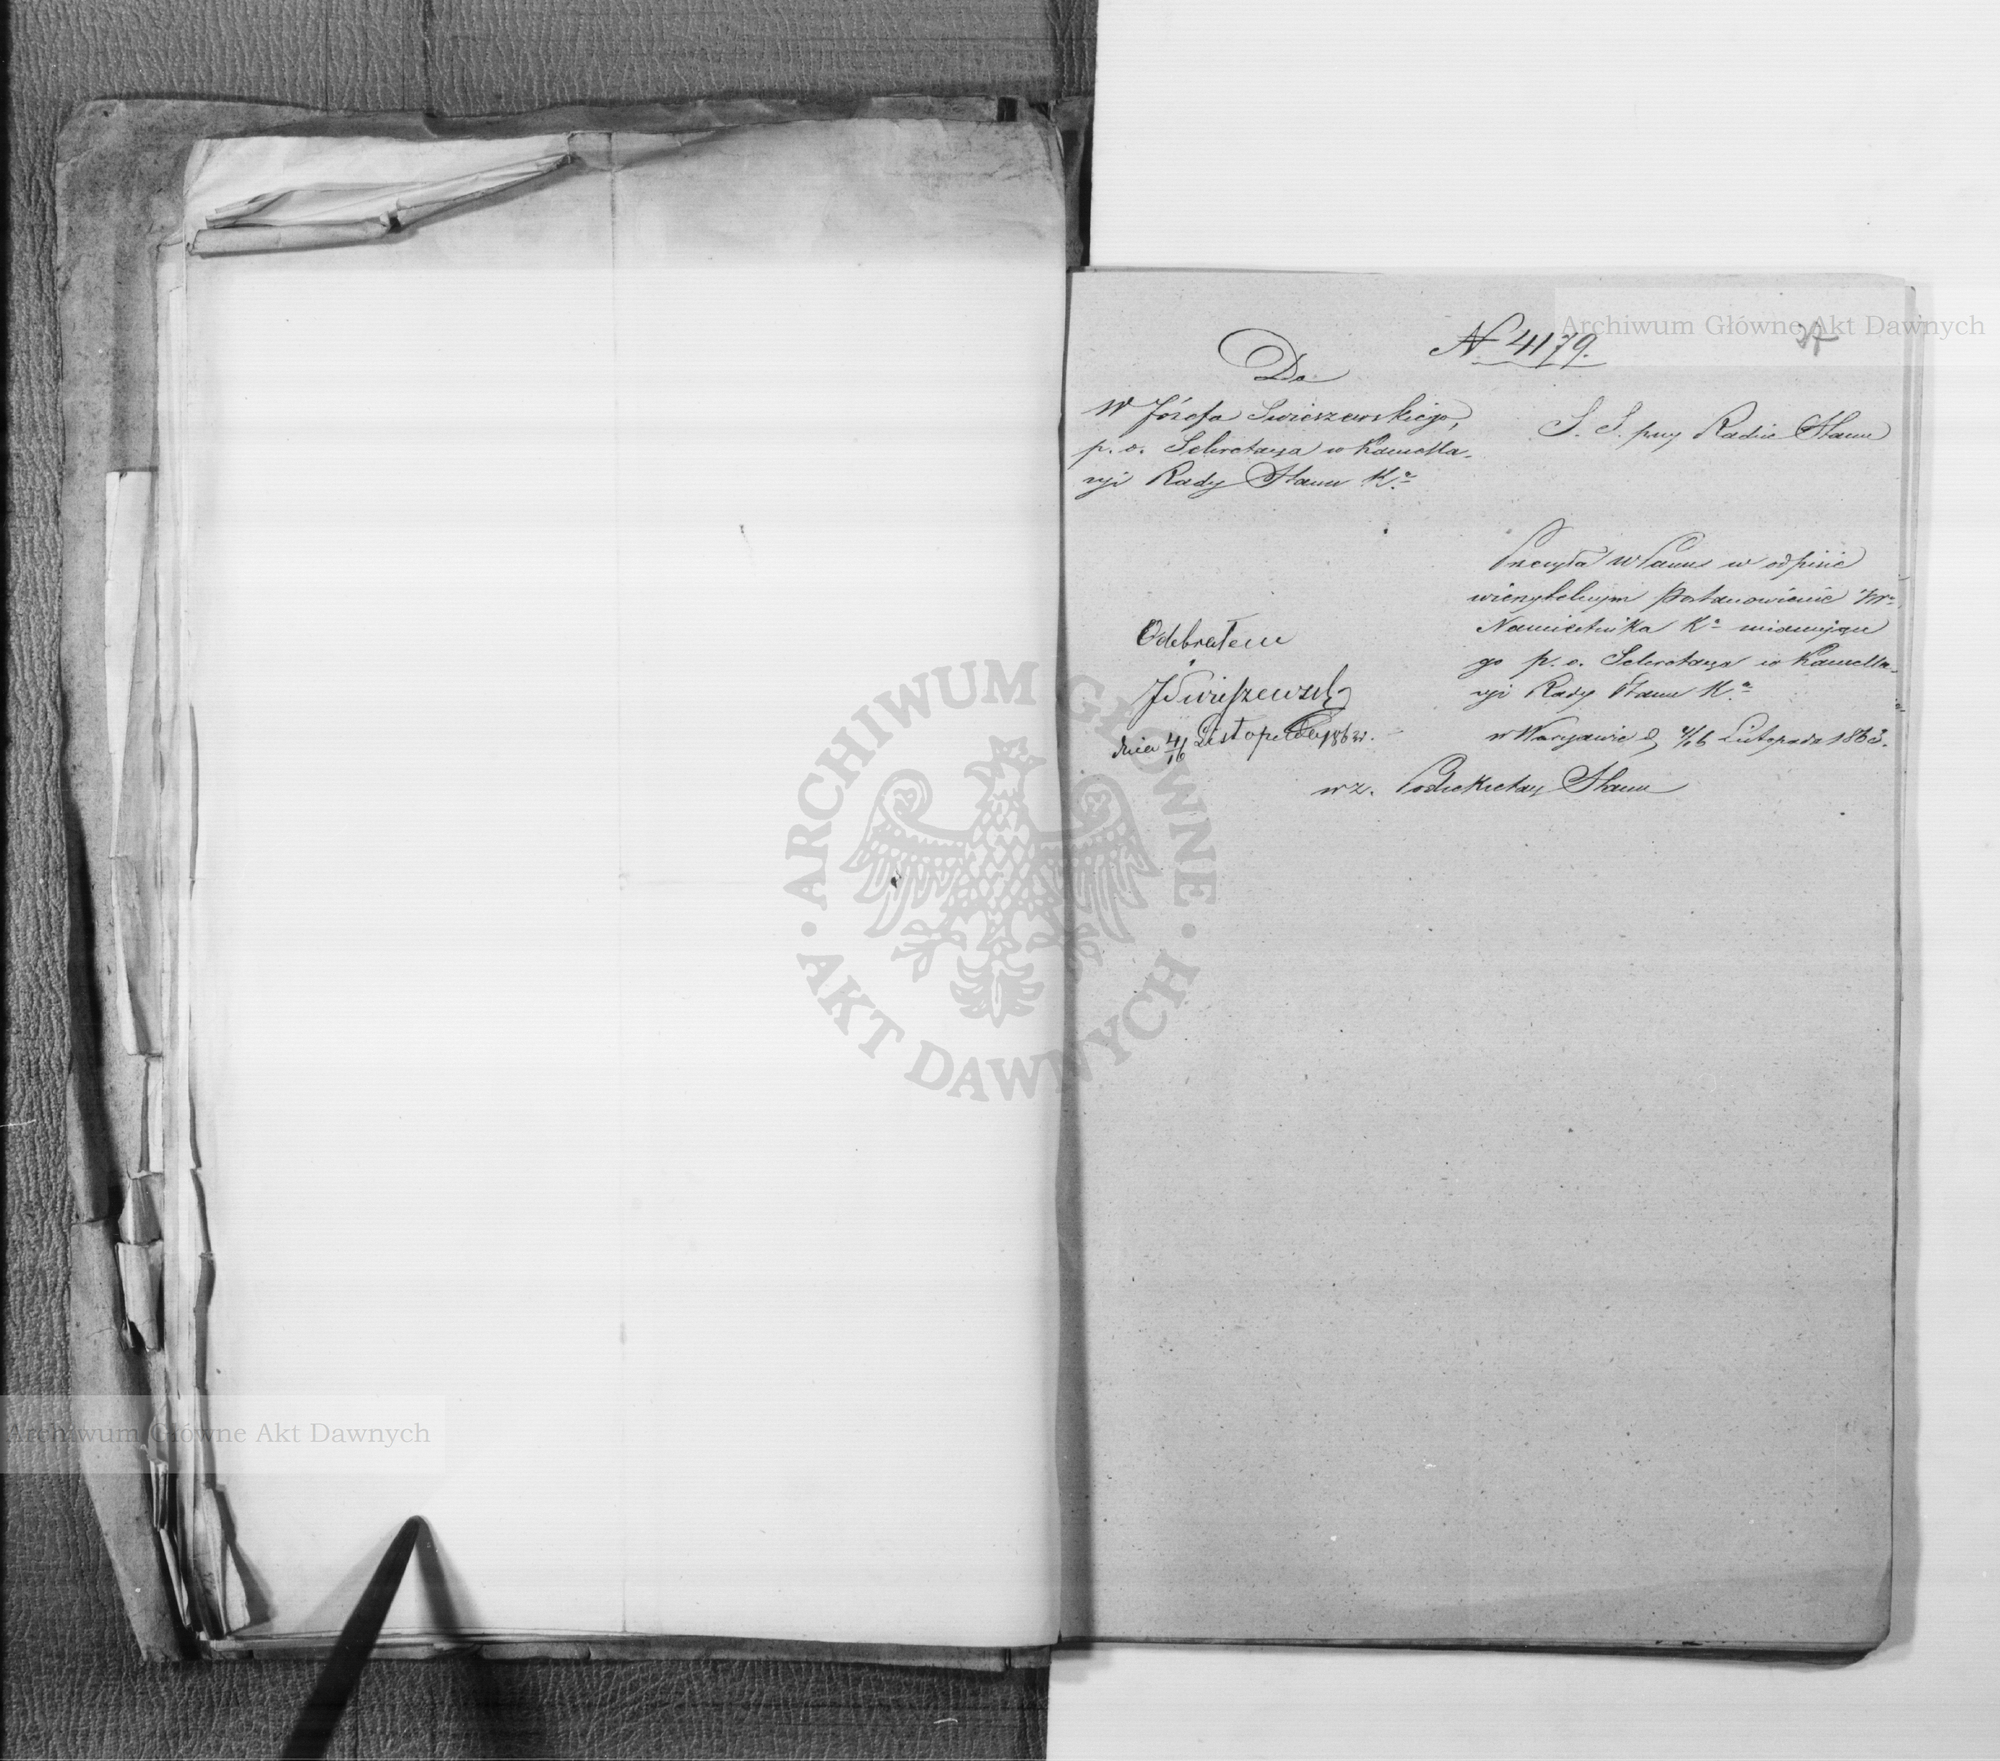 N 4179.
37
Do
W Józefa Swieszewskiego,
p. o. Sekretarza w Kancella-
ryi Rady Stanu Kª
S. S. przy Radzie Stanu
Przesyła WPanu w odpisie
wierzytelnym Postanowienie
Namiestnika Kª mianujące
go p. o. Sekretarza w Kancella-
ryi Rady Stanu Kª
w Warszawie d. 4/16 Listopada 1863.
wz. Podsekretarz Stanu
Odebrałem
JSwieszewski
dnia 4/16 Listopada 1863 r.
Archiwum Główne Akt Dawnych
Archiwum Główne Akt Dawnych
ARCHIWUM GŁÓWNE
AKT DAWNYCH